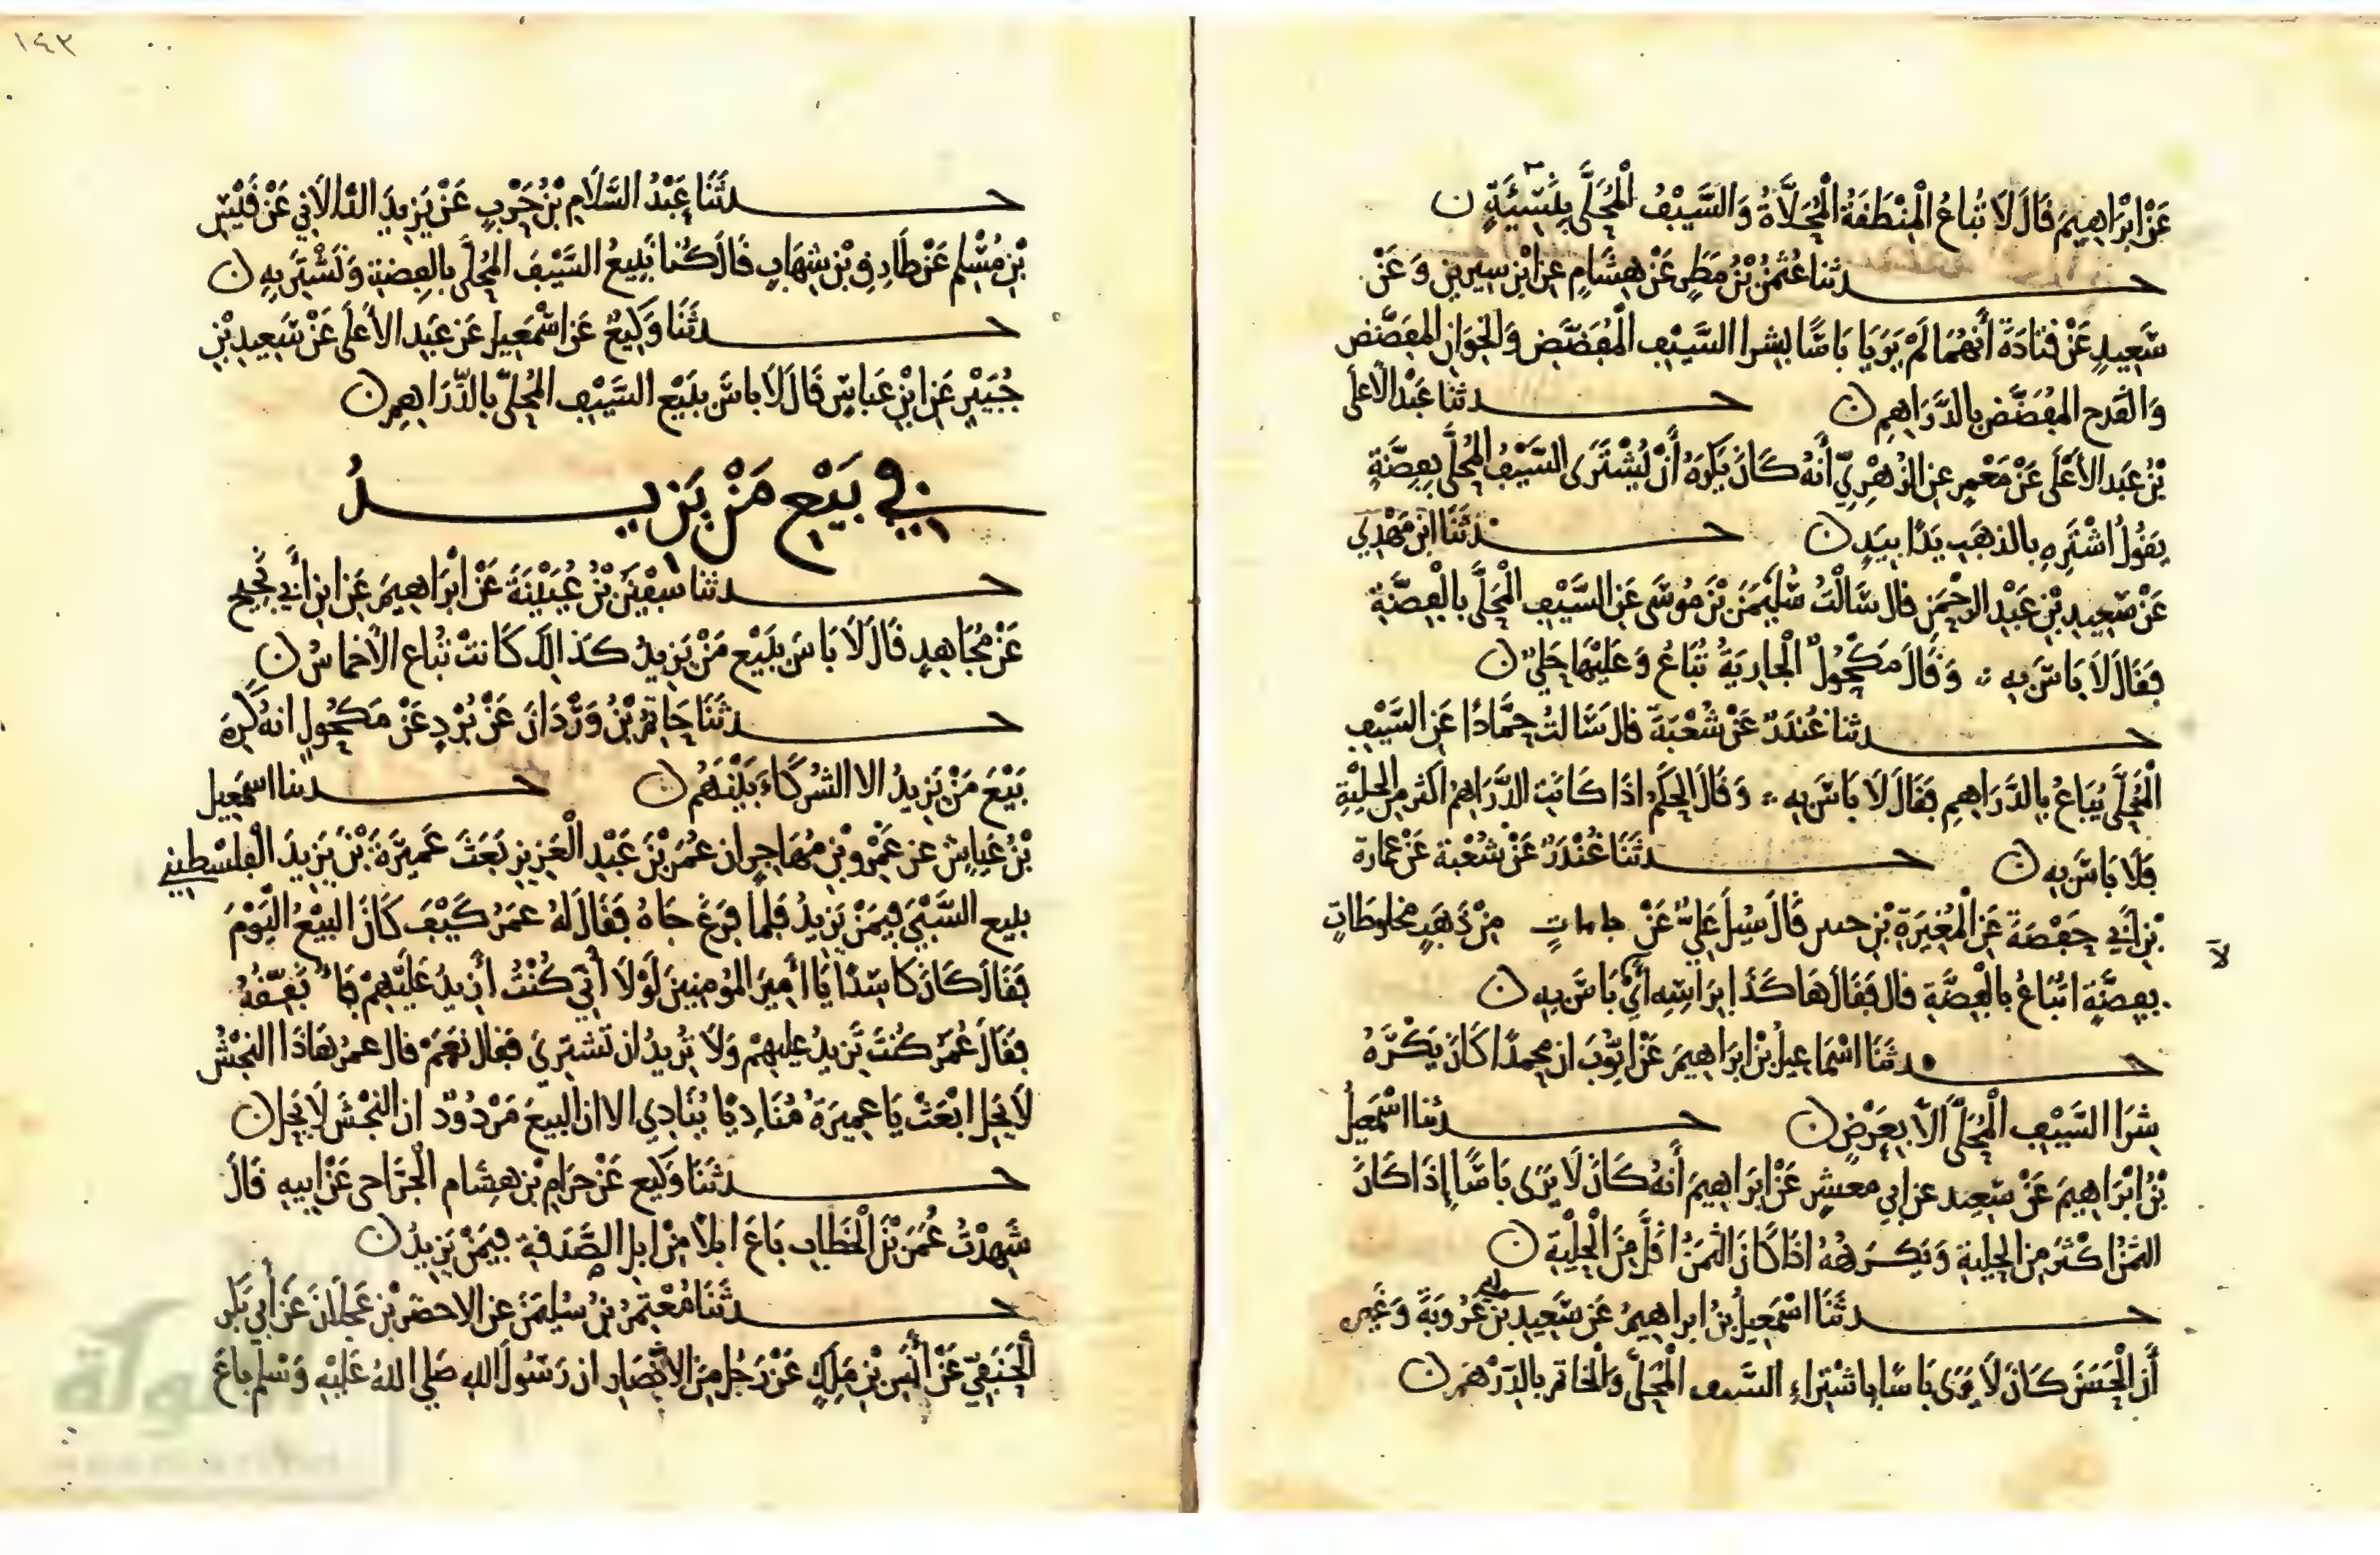 عَنْ ابْرَاهِيمَ قَالَ لَا تُبَاعُ الْمِنْطَقَةُ الْمُحَلَّاةُ وَالسَّيْفُ الْمُحَلَّى بِنَسِيَّةٍ ن
حدثنا عُثْمَنُ بْنُ مَطَرٍ عَنْ هِشَامٍ عَنِ ابْنِ سِيرِينَ وَعَنْ
سَعِيدٍ عَنْ قَتَادَةَ أَنَّهُمَا لَمْ يَرَيَا بَاسًا بشرا السَّيْفِ الْمُفَضَّضِ وَالْخِوَانِ الْمُفَضَّضِ
وَالْقَدَحِ الْمُفَضَّضِ بِالدَّرَاهِمِ ن حدثنا عَبْدُ الْأَعْلَى
بْنُ عَبْدِ الْأَعْلَى عَنْ مَعْمَرٍ عَنِ الزُّهْرِيِّ أَنَّهُ كَانَ يَكْرَهُ أَنْ يُشْتَرَى السَّيْفُ الْمُحَلَّى بِفِضَّةٍ
يَقُولُ اشْتَرِهِ بِالذَّهَبِ يَدًا بِيَدٍ ن حدثَنَا ابْنُ مَهْدِيٍّ
عَنْ سَعِيدِ بْنِ عَبْدِ الرَّحْمَنِ قَالَ سَالْتُ سُلَيْمَنَ بْنَ مُوسَى عَنِ السَّيْفِ الْمُحَلَّى بِالْفِضَّةِ
فَقَالَ لَا بَاسَ بِهِ وَقَالَ مَكْحُولٌ الْجَارِيَةُ تُبَاعُ وَعَلَيْهَا حَلْيٌ ن
حدثنا غُنْدَرٌ عَنْ شُعْبَةَ قَالَ سَالْتُ حَمَّادًا عَنِ السَّيْفِ
الْمُحَلَّى يُبَاعُ بِالدَّرَاهِمِ فَقَالَ لَا بَاسَ بِهِ وَقَالَ الْحَكَمُ اذَا كَانَتِ الدَّرَاهِمُ اكْثَر مِنَ الْحِلْيَةِ
فَلَا بَاسَ بِهِ ن حدثَنَا غُنْدَرٌ عَنْ شُعْبَةَ عَنْ عُمَارَةَ
بْنِ أَبِي حَفْصَةَ عَنِ الْمُغِيرَةِ بْنِ حنين قَالَ سُئِلَ عَلِيٌّ عَنْ جامات مِنْ ذَهَبٍ مخلوطَاتٍ
بِفِضَّةٍ اتُبَاعُ بِالْفِضَّةِ قَالَ فَقَالَ هَاكَذَا بِرَاسِهِ أَيْ لَا بَاسَ بِهِ ن
حدثَنَا اسْمَاعِيلُ بْنُ ابْرَاهِيمَ عَنْ ايُّوبَ ان مُحَمَّدًا كَانَ يَكْرَهُ
شِرَا السَّيْفِ الْمُحَلَّى الَّا بِعَرْضٍ ن حدثنا اسْمَعِيلُ
بْنُ ابْرَاهِيمَ عَنْ سَعِيد عَن ابِي مَعْشَرٍ عَنْ ابْرَاهِيمَ أَنَّهُ كَانَ لَا يَرَى بَاسًا إِذَا كَانَ
الثَّمَنُ اكْثَرَ مِنَ الْحِلْيَةِ وَيَكْرَهُهُ اذَا كَانَ الثَّمَنُ اقَلَّ مِنَ الْحِلْيَةِ ن
حدثَنَا اسْمَعِيلُ بْنُ ابراهيمَ عَنْ سَعِيدِ بْنِ ابي عَرُوبَةَ وَغَيره
أَنَّ الْحَسَنَ كَانَ لَا يَرَى بَاسًا بِاشْتِرَاءِ السَّيف الْمُحَلَّى وَالْخَاتم بالدِّرْهَمِ ن
لا
١٤٣
حدثَنَا عَبْدُ السَّلَامِ بْنُ حَرْبٍ عَنْ يَزِيدَ الدَّالَانِي عَنْ قَيْسِ
بْنِ مُسْلِم عَنْ طَارِقِ بْنِ شِهَابٍ قَالَ كُنا نَبِيعُ السَّيْفَ الْمُحَلَّى بِالْفِضَّةِ وَنَشْتَرِيهِ ن
حدثَنَا وَكِيعٌ عَنِ اسْمَعِيلَ عَنْ عَبْدِ الْأَعْلَى عَنْ سَعِيدِ بْنِ
جُبَيْرٍ عَنِ ابْنِ عَبَاسٍ قَالَ لَا بَاسَ بِبَيْعِ السَّيْفِ الْمُحَلَّى بِالدَّرَاهِمِ ن
في بَيْعِ مَنْ يَزِيدُ
حدثنا سفْيَنُ بْنُ عُيَيْنَةَ عَنْ ابْرَاهِيمَ عَنِ ابْنِ أَبِي نَجِيحٍ
عَنْ مُجَاهِدٍ قَالَ لَا بَاسَ بِبَيْعِ مَنْ يَزِيدُ كَذَالِكَ كَانَتْ تُبَاع الْأَخْمَاسُ ن
حدثَنَا حَاتِمُ بْنُ وَرْدَانَ عَنْ بُرْدٍ عَنْ مَكْحُولٍ انهُ كَرِهَ
بَيْعَ مَنْ يَزِيدُ الا الشُّرَكَاءَ بَيْنَهُمْ ن حدثنا اسمعيل
بْنُ عَيَاش عَنْ عَمْرِو بْنِ مُهَاجِرٍ ان عُمَرَ بْنَ عَبْدِ الْعَزِيزِ بَعَثَ عَمِيرَةَ بْنَ يَزِيدَ الْفلسطِيني
يبيع السَّبْيَ فِيمَنْ يَزِيدُ فَلَمَّا فَرَغَ جَاهُ فَقَالَ لَهُ عمَرُ كَيْفَ كَانَ الْبَيْعُ الْيَوْمَ
فَقَالَ كَانَ كَاسِدًا يَا أَمِيرَ الْمُومِنِينَ لَوْلَا أَنِّي كُنْتُ أَزِيدُ عَلَيْهِمْ فَأُنَفِّقُهُ
فَقَالَ عُمَرُ كُنْتَ تَزِيدُ عليهِمْ وَلَا تُرِيدُ ان تَشْتَرِيَ فَقَالَ نَعَمْ قال عمرُ هَاذَا النَّجْشُ
لَا يَحِلُّ ابْعَثْ يَا عَمِيرَةُ مُنَادِيًا يُنَادِي الا ان الْبيعَ مَرْدُودٌ ان النجْشَ لَا يَحِلُّ ن
حدثَنَا وَكِيع عَنْ حَرَامِ بْنِ هِشَام الْخزَاعي عَنْ ابِيهِ قَالَ
شَهِدْتُ عُمَرَ بْنَ الْخَطَّابِ بَاعَ ابلًا مِنْ ابِلِ الصَّدَقَةِ فِيمَنْ يَزِيدُ ن
حدثَنَا مُعْتَمِرُ بْنُ سُلَيْمَنَ عَنِ الاخضر بْنِ عَجْلَانَ عَنْ أَبِي بَكْر
الْحَنَفِيِّ عَنْ أَنَسِ بْنِ مَلِكٍ عَنْ رَجُلٍ مِنَ الانْصَارِ ان رَسُولَ اللهِ صَلى اللهُ عَلَيْهِ وَسَلم باعَ